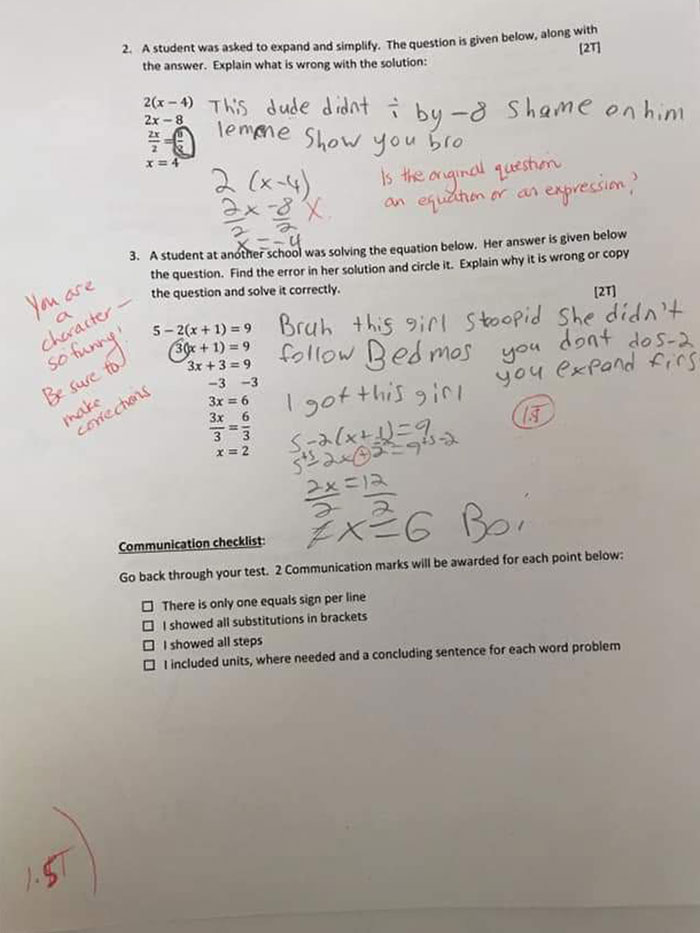 2. A student was asked to expand and simplify. The question is given below, along with
the answer. Explain what is wrong with the solution:
[2T]
2(x – 4)
2x – 8
2x/2 = 8/2
x = 4
This dude didnt ÷ by -8 Shame on him
lemme Show you bro
2 (x-4)
2x/2 -8/2 X
x = -4
Is the original question
an equation or an expression?
3. A student at another school was solving the equation below. Her answer is given below
the question. Find the error in her solution and circle it. Explain why it is wrong or copy
the question and solve it correctly.
[2T]
You are
a
character –
so funny!
Be sure to
make
corrections
5 – 2(x + 1) = 9
3(x + 1) = 9
3x + 3 = 9
-3 -3
3x = 6
3x/3 = 6/3
x = 2
Bruh this girl Stoopid She didn't
follow Bedmas you dont do 5-2
you expand firs
I got this girl
1.5T
5-2(x+1)=9
2x/2 = 12/2
x=6 Boi
Communication checklist:
Go back through your test. 2 Communication marks will be awarded for each point below:
☐ There is only one equals sign per line
☐ I showed all substitutions in brackets
☐ I showed all steps
☐ I included units, where needed and a concluding sentence for each word problem
1.5T